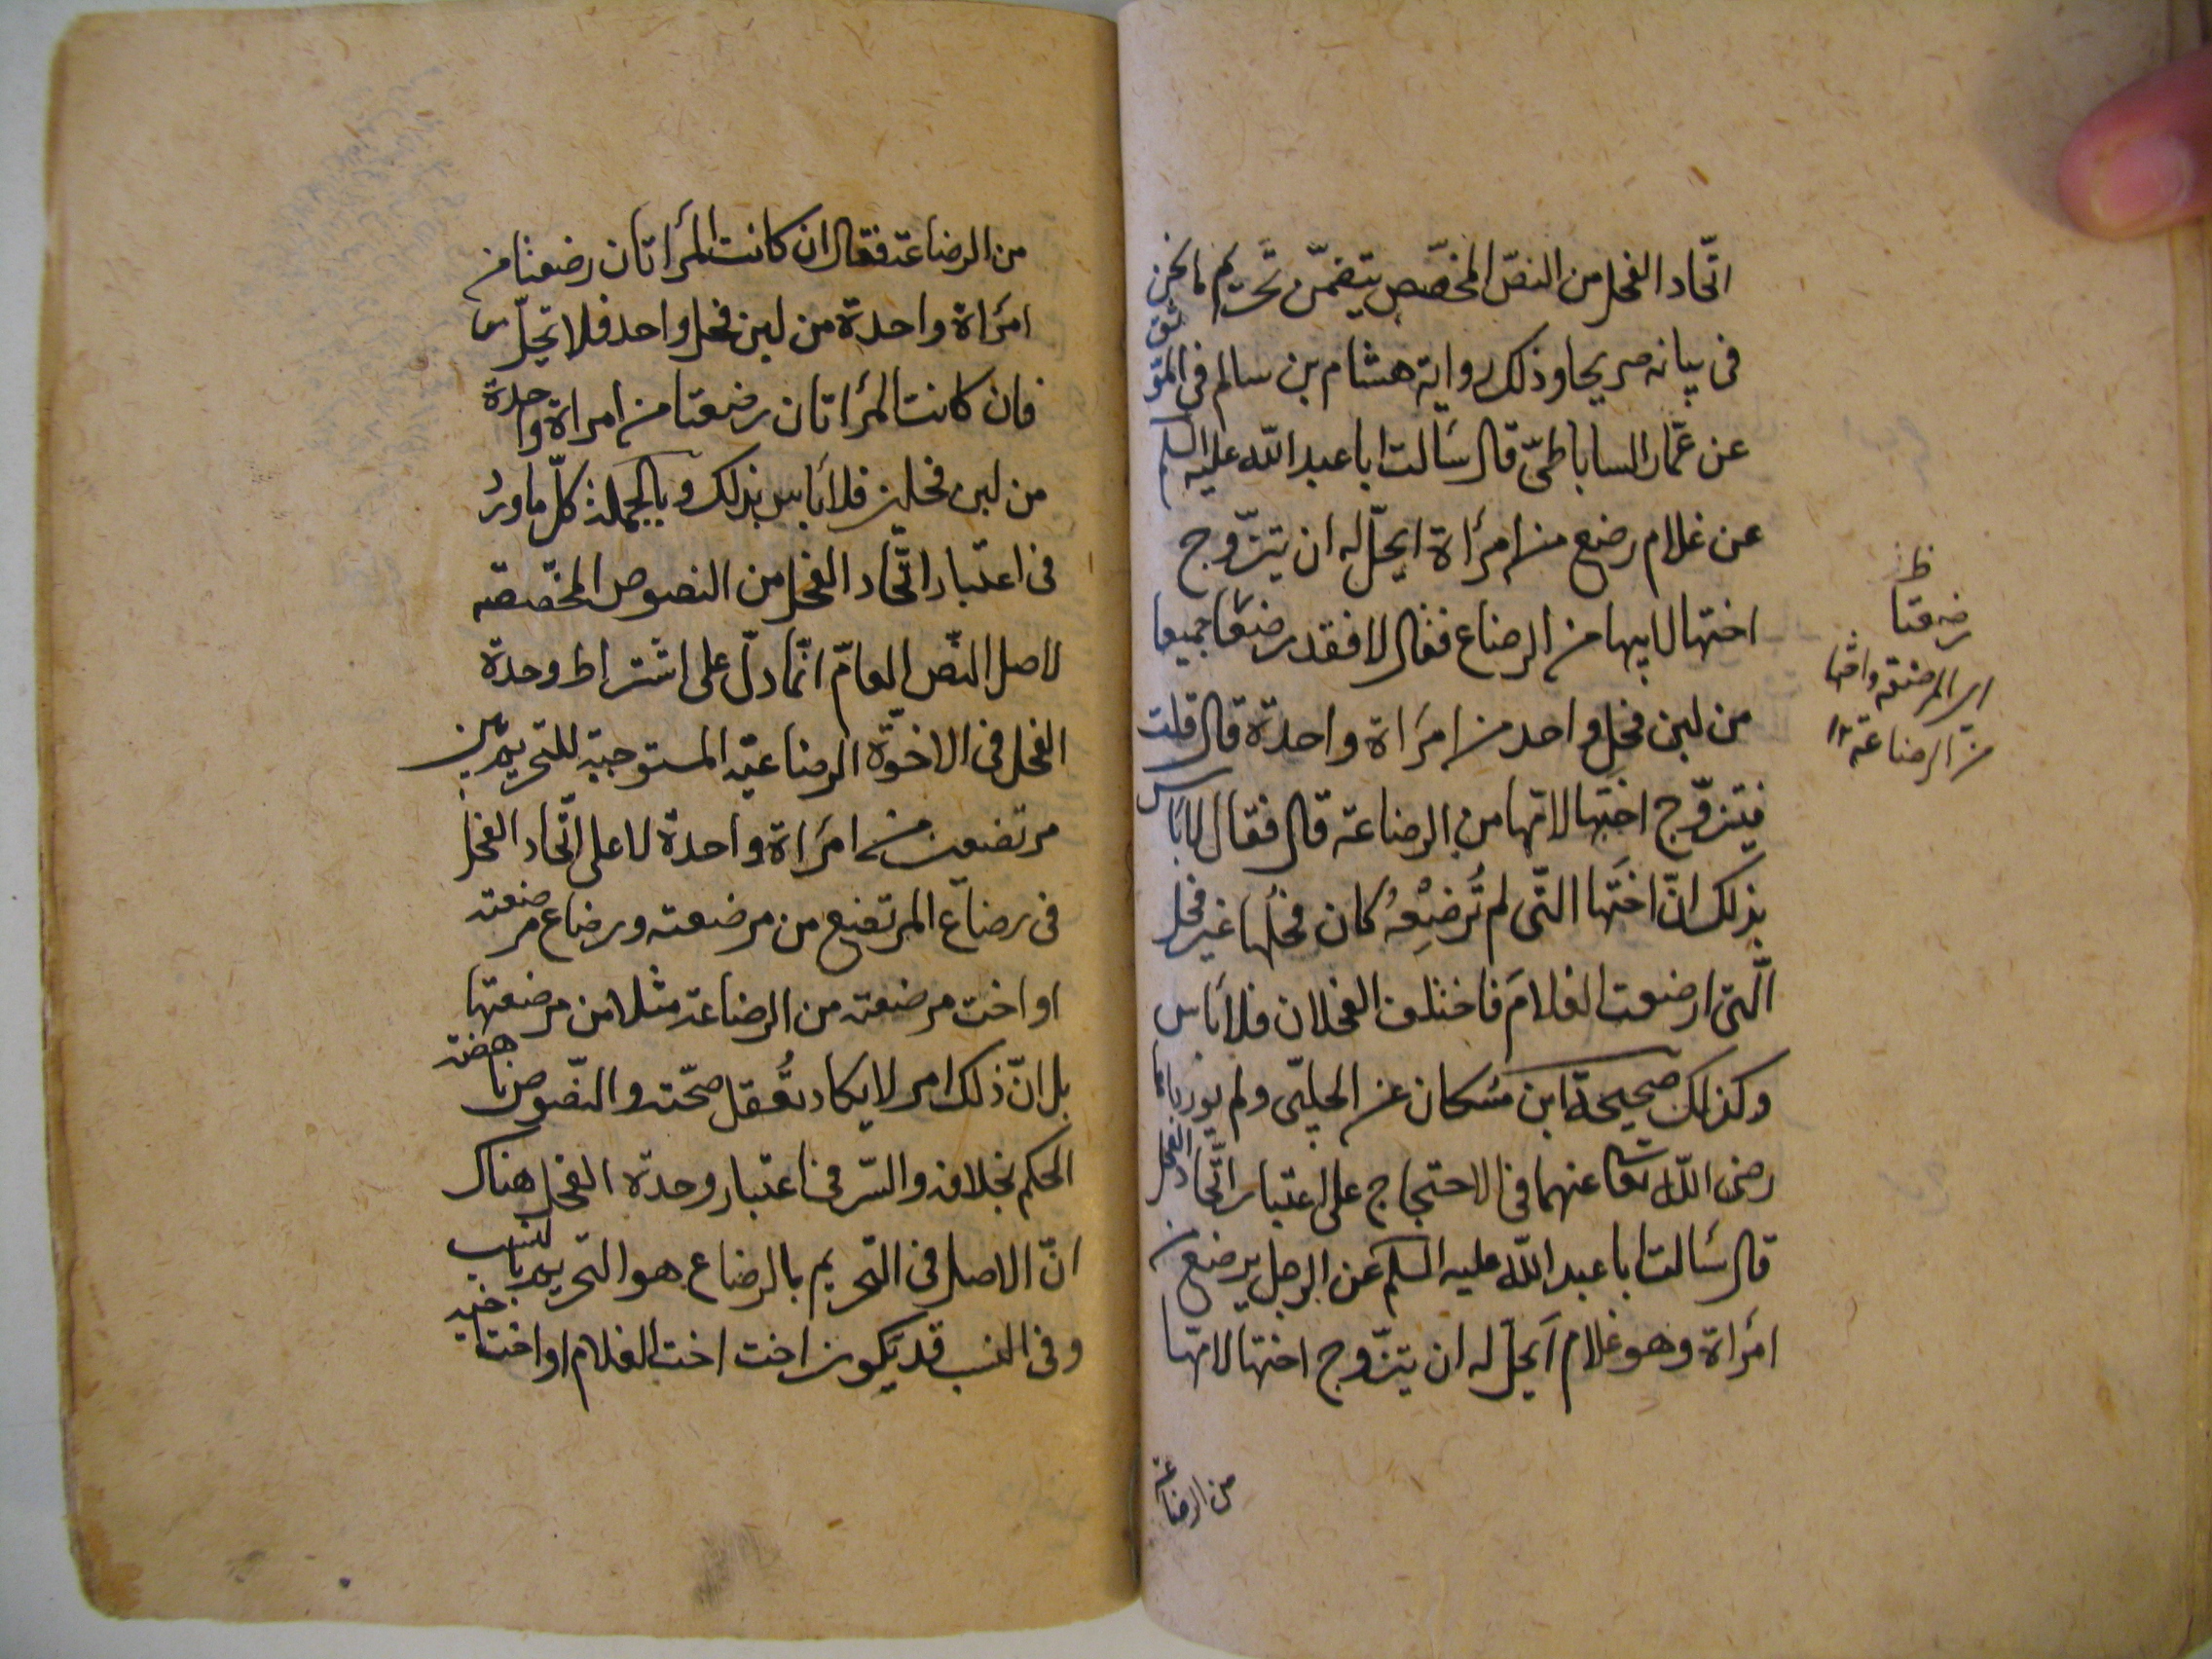 اتّحاد الفحل من النصّ المخصّص يتضمّن تحريم ما نحن
فى بيانه صريحا وذلك رواية هشام بن سالم فى الموثق
عن عمّار الساباطىّ قال سَالت ابا عبد اللّه عليه السلم
عن غلام رضع من امرَاة ايحلّ له ان يتزّوج
اختها لابيها من الرضاع فقال لا فقد رضعَا جميعا
من لبن فحلٍ واحد من امرَاة واحدة قال قلت
فيتزوّج اختها لامّها من الرضاعة قال فقال لا بَاس
بذلك انّ اختَها التّى لم تُرضِعْهُ كان فحلُها غير فحل
الّتى ارضعت الغلامَ فاختلف الفحلان فلا بَاس
وكذلك صحيحة ابن مُسكان عن الحلبّى ولم يورد
رضى اللّه تعا عنهما فى الاحتجاج على اعتبار اتّحاد الفحل
قال سَالت ابا عبد اللّه عليه السلم عن الرجل يرضع من
امرَاة وهو غلام اَيحلّ له ان يتزّوج اختها لامّها
من الرضاعة
ظ
رضعتا
اى المرضعة واختها
من الرضاعة ١٢
من الرضاعة فقال ان كانت المرَاتان رضعتا من
امرَاة واحدة من لبن فحل واحد فلا تحلّ
فان كانت المرَاتان رضعتا من امراة واحدة
من لبن فحلين فلا بَاس بذلك وبالجملة كلّ ما ورد
فى اعتبار اتّحاد الفحل من النصوص المخصّصة
لاصل النّص العامّ انّما دلّ على اشتراط وحدة
الفحل فى الاخوّة الرضاعيّة المستوجبة للتحريم بين
مرتضعين من امرَاة واحدة لا على اتّحاد الفحل
فى رضاع المرتضع من مرضعته ورضاع مرضعته
او اخت مرضعته من الرضاعة مثلا من مرضعتها
بل انّ ذلك امر لا يكاد يُتعقل صحّته والنّصوص ناهضة
الحكم بخلافه والسّر فى اعتبار وحدة الفحل هناك
انّ الاصل فى التّحريم بالرضاع هو التّحريم بالنسب
وفى النسب قد يكون اخت اخت الغلام او اخت اخيه